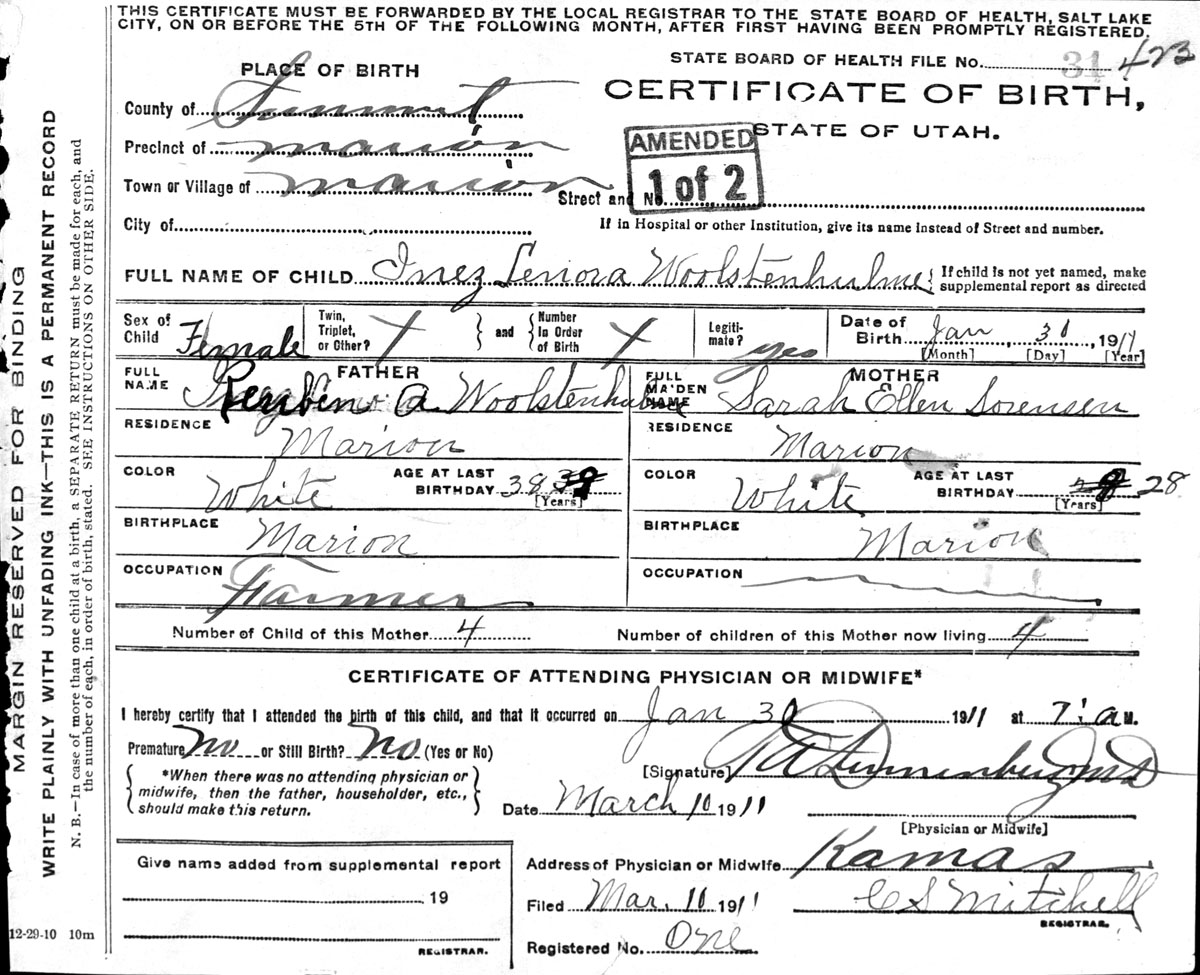 THIS CERTIFICATE MUST BE FORWARDED BY THE LOCAL REGISTRAR TO THE STATE BOARD OF HEALTH, SALT LAKE
CITY, ON OR BEFORE THE 5TH OF THE FOLLOWING MONTH, AFTER FIRST HAVING BEEN PROMPTLY REGISTERED.
STATE BOARD OF HEALTH FILE NO. 31 423
PLACE OF BIRTH
CERTIFICATE OF BIRTH,
STATE OF UTAH.
AMENDED
1 of 2
County of Summit
Precinct of Marion
Town or Village of Marion
Street and No.
City of
If in Hospital or other Institution, give its name instead of Street and number.
FULL NAME OF CHILD Inez Lenora Woolstenhulme { If child is not yet named, make
supplemental report as directed
Sex of Child Female
Twin, Triplet, or Other? X } and { Number In Order of Birth X
Legitimate? yes
Date of Birth Jan 30, 1911
[Month] [Day] [Year]
FATHER
FULL NAME Reuben A. Woolstenhulme
MOTHER
FULL MAIDEN NAME Sarah Ellen Sorensen
RESIDENCE Marion
RESIDENCE Marion
COLOR White AGE AT LAST BIRTHDAY 38 39 [Years]
COLOR White AGE AT LAST BIRTHDAY 28 [Years]
BIRTHPLACE Marion
BIRTHPLACE Marion
OCCUPATION Farmer
OCCUPATION
Number of Child of this Mother 4
Number of children of this Mother now living 4
CERTIFICATE OF ATTENDING PHYSICIAN OR MIDWIFE*
I hereby certify that I attended the birth of this child, and that it occurred on Jan 30 1911 at 7: a M.
Premature? No or Still Birth? No (Yes or No)
{ *When there was no attending physician or
midwife, then the father, householder, etc.,
should make this return. }
[Signature]
Date March 10 1911
[Physician or Midwife]
Give name added from supplemental report
19
REGISTRAR.
Address of Physician or Midwife Kamas
Filed Mar. 10 1911 C S Mitchell
REGISTRAR.
Registered No. One
12-29-10 10m
MARGIN RESERVED FOR BINDING
WRITE PLAINLY WITH UNFADING INK—THIS IS A PERMANENT RECORD
N. B.—In case of more than one child at a birth, a SEPARATE RETURN must be made for each, and
the number of each, in order of birth, stated. SEE INSTRUCTIONS ON OTHER SIDE.